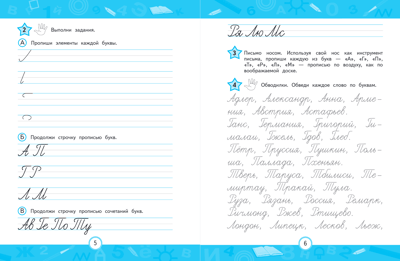 2 Выполни задания.
А Пропиши элементы каждой буквы.
Б Продолжи строчку прописью букв.
А П
Г Р
Л М
В Продолжи строчку прописью сочетаний букв.
Ав Ге По Ту
5
Ря Лю Мс
3 Письмо носом. Используя свой нос как инструмент
письма, пропиши каждую из букв — «А», «Г», «П»,
«Т», «Р», «Л», «М» — прописью по воздуху, как по
воображаемой доске.
4 Обводилки. Обведи каждое слово по буквам.
Адлер, Александр, Анна, Арме-
ния, Австрия, Астафьев.
Ганс, Германия, Григорий, Ги-
малаи, Гжель, Гдов, Глеб.
Петр, Пруссия, Пушкин, Поль-
ша, Паллада, Пхеньян.
Тверь, Таруса, Тбилиси, Те-
миртау, Тракай, Тула.
Руза, Рязань, Россия, Ремарк,
Ричмонд, Ржев, Ртищево.
Лондон, Липецк, Лесков, Льеж,
6